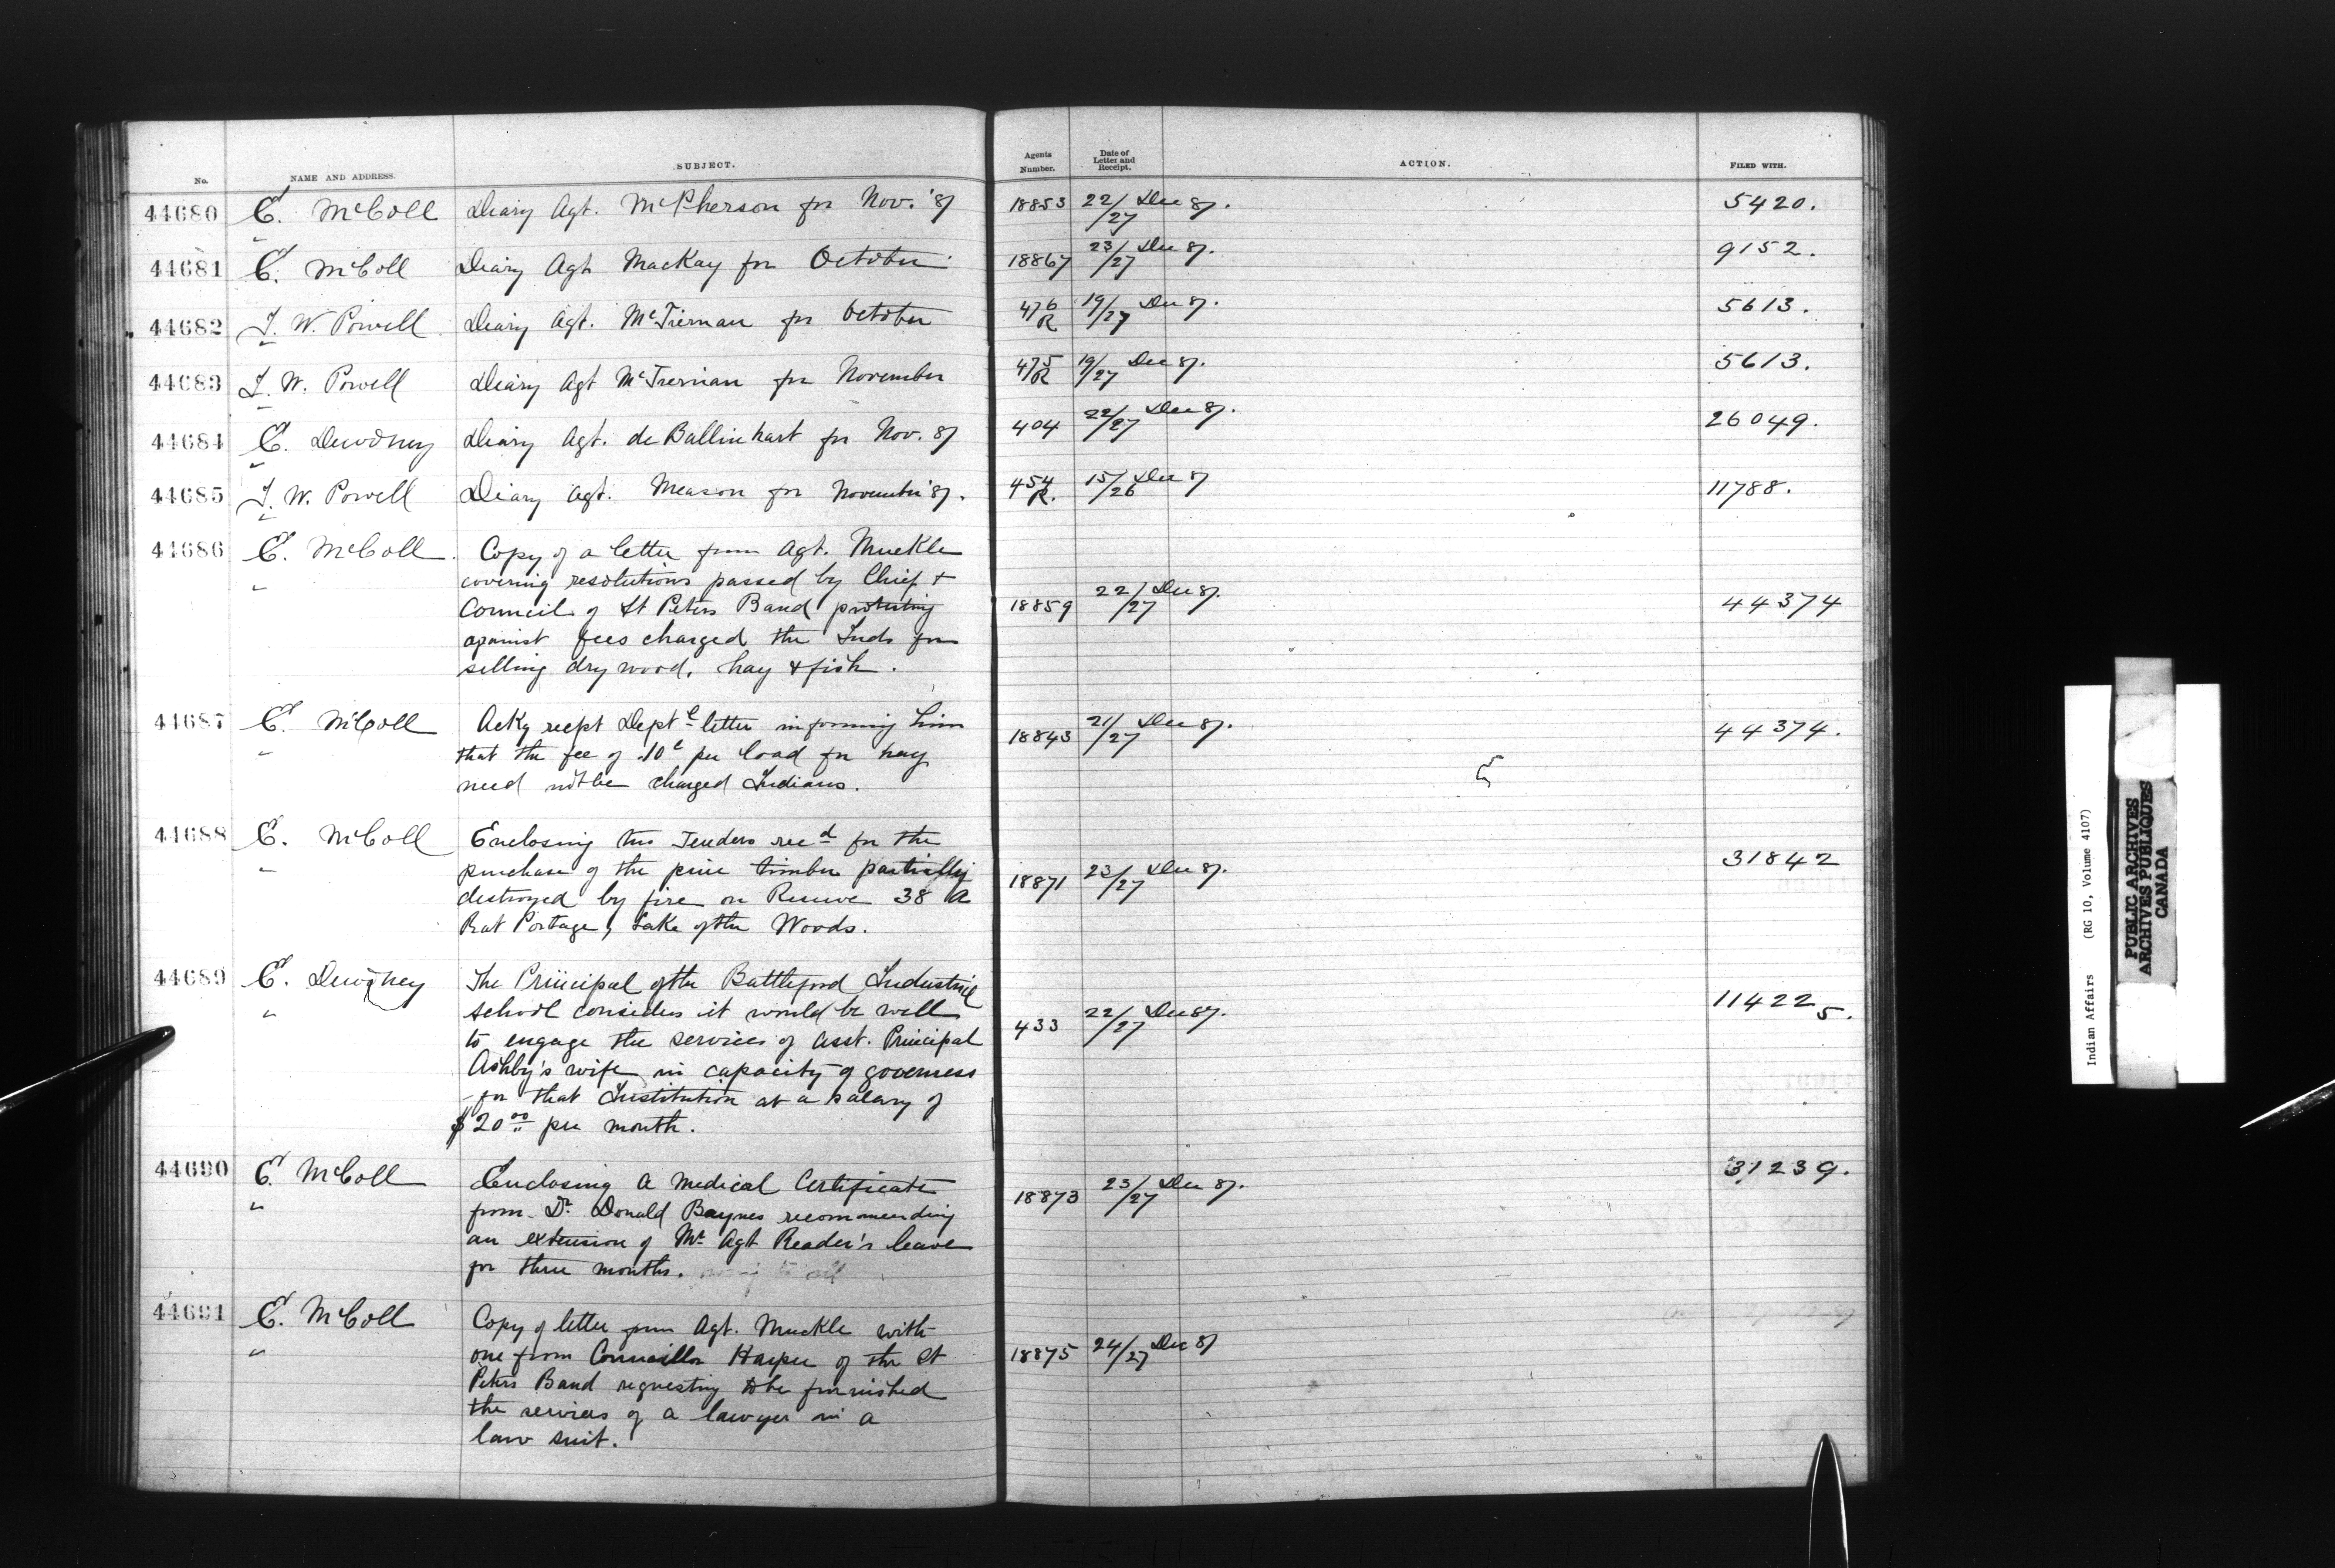 No. NAME AND ADDRESS. SUBJECT. Agents Number. Date of Letter and Receipt. ACTION. FILED WITH.
44680 E. McColl Diary Agt. McPherson for Nov. '87 18853 22/27 Dec 87. 5420.
44681 E. McColl Diary Agt MacKay for October 18867 23/27 Dec 87. 9152.
44682 I. W. Powell Diary Agt. McTiernan for October 476 R 19/27 Dec 87. 5613.
44683 I. W. Powell Diary Agt McTiernan for November 475 R 19/27 Dec 87. 5613.
44684 E. Dewdney Diary Agt. de Ballinhart for Nov. 87 404 22/27 Dec 87. 26049.
44685 I. W. Powell Diary Agt. Meason for November '87. 454 R. 15/26 Dec 7 11788.
44686 E. McColl Copy of a letter from Agt. Muckle
covering resolutions passed by Chief +
Council of St Peters Band protesting 18859 22/27 Dec 87. 44374
against fees charged the Inds for
selling dry wood, hay + fish.
44687 E. McColl Ackg recpt Deptl letter informing him 18843 21/27 Dec 87. 44374.
that the fee of .10c per load for hay
need not be charged Indians.
44688 E. McColl Enclosing two Tenders recd for the
purchase of the pine timber partially 18871 23/27 Dec 87. 31842
destroyed by fire on Reserve 38 A
Rat Portage, Lake of the Woods.
44689 E. Dewdney The Principal of the Battleford Industrial
school considers it would be well 433 22/27 Dec 87. 11422 5.
to engage the services of Asst. Principal
Ashby's wife in capacity of governess
for that Institution at a salary of
$20.00 per month.
44690 E. McColl Enclosing a Medical Certificate 18873 23/27 Dec 87. 31239.
from Dr. Donald Baynes recommending
an extension of Mr. Agt Reader's leave
for three months.
44691 E. McColl Copy of letter from Agt. Muckle with
one from Councillor Harper of the St 18875 24/27 Dec 87
Peters Band requesting to be furnished
the services of a lawyer in a
law suit.
Indian Affairs (RG 10, Volume 4107)
PUBLIC ARCHIVES
ARCHIVES PUBLIQUES
CANADA